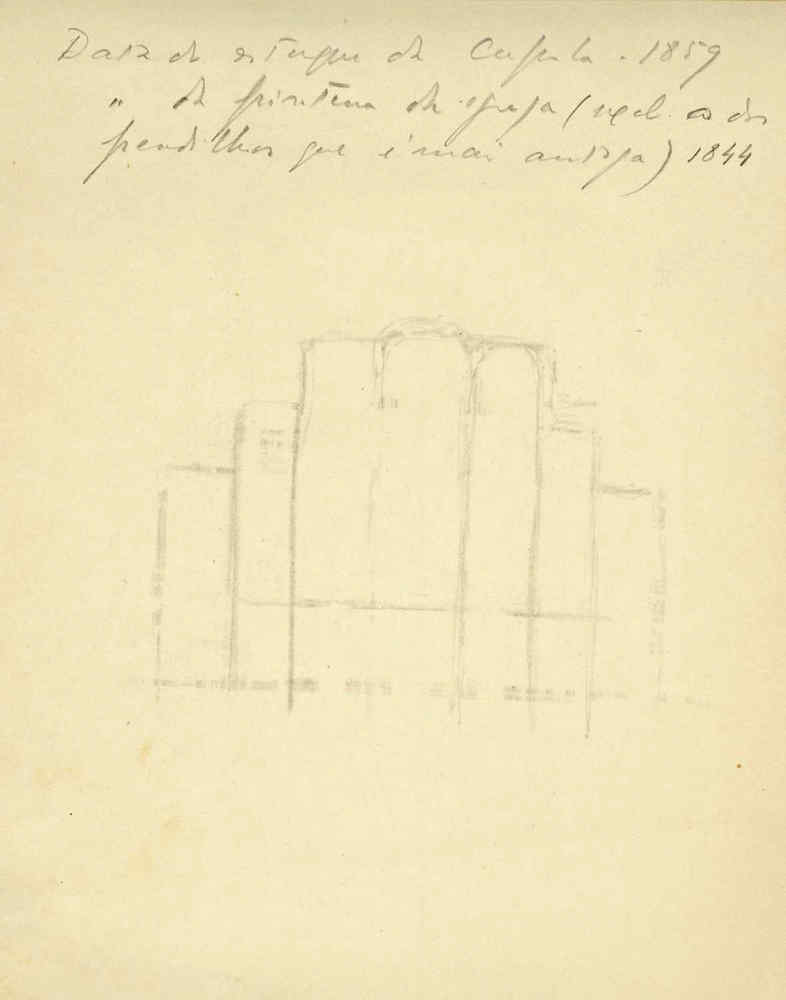 Data do estuque da Cupula - 1859
" da pintura da igreja (excl. a dos
pendilhos que é mais antiga) 1844